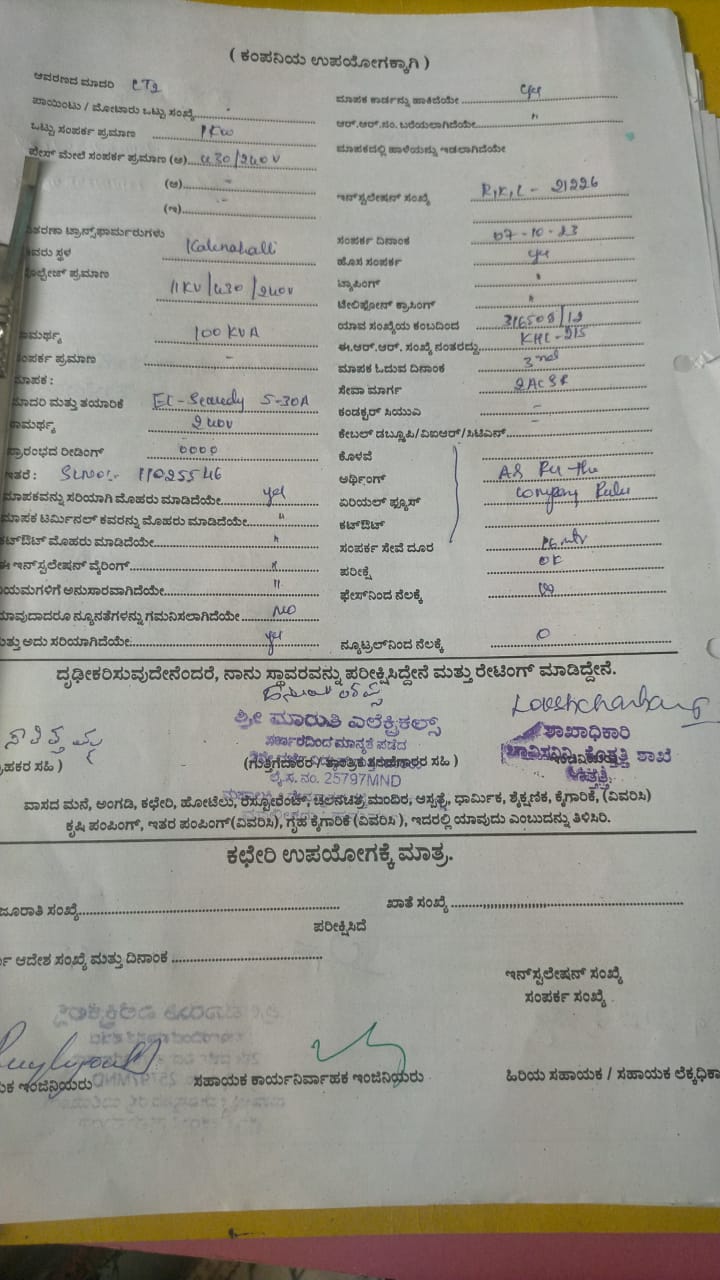 ( ಕಂಪನಿಯ ಉಪಯೋಗಕ್ಕಾಗಿ )
ಆವರಣದ ಮಾದರಿ
ಪಾಯಿಂಟು / ಮೋಟಾರು ಒಟ್ಟು ಸಂಖ್ಯೆ
ಒಟ್ಟು ಸಂಪರ್ಕ ಪ್ರಮಾಣ 1KW
ಫೇಸ್ ಮೇಲೆ ಸಂಪರ್ಕ ಪ್ರಮಾಣ (ಅ) 430/240V
(ಆ) -
(ಇ) -
ವಿತರಣಾ ಟ್ರಾನ್ಸ್‌ಫಾರ್ಮರುಗಳು
ಸ್ಥಳ Kalenahalli
ಪ್ರಮಾಣ 11KV/430/240V
100 KVA
ಸಂಪರ್ಕ ಪ್ರಮಾಣ -
ಮಾಪಕ :
ಮಾದರಿ ಮತ್ತು ತಯಾರಿಕೆ 5-30A
240V
ಪ್ರಾರಂಭದ ರೀಡಿಂಗ್ 0000
ಇತರೆ : 11025546
ಮಾಪಕವನ್ನು ಸರಿಯಾಗಿ ಮೊಹರು ಮಾಡಿದೆಯೇ yes
ಮಾಪಕ ಟರ್ಮಿನಲ್ ಕವರನ್ನು ಮೊಹರು ಮಾಡಿದೆಯೇ "
ಕಟ್‌ಔಟ್ ಮೊಹರು ಮಾಡಿದೆಯೇ "
ಈ ಇನ್‌ಸ್ಟಲೇಷನ್ ವೈರಿಂಗ್ "
ನಿಯಮಗಳಿಗೆ ಅನುಸಾರವಾಗಿದೆಯೇ "
ಯಾವುದಾದರೂ ನ್ಯೂನತೆಗಳನ್ನು ಗಮನಿಸಲಾಗಿದೆಯೇ NO
ಮತ್ತು ಅದು ಸರಿಯಾಗಿದೆಯೇ yes
ಮಾಪಕ ಕಾರ್ಡನ್ನು ಹಾಕಿದೆಯೇ yes
ಆರ್.ಆರ್.ನಂ. ಬರೆಯಲಾಗಿದೆಯೇ "
ಮಾಪಕದಲ್ಲಿ ಹಾಳೆಯನ್ನು ಇಡಲಾಗಿದೆಯೇ
ಇನ್‌ಸ್ಟಲೇಷನ್ ಸಂಖ್ಯೆ 21226
ಸಂಪರ್ಕ ದಿನಾಂಕ 07-10-23
ಹೊಸ ಸಂಪರ್ಕ yes
ಟ್ಯಾಪಿಂಗ್ "
ಟೆಲಿಫೋನ್ ಕ್ರಾಸಿಂಗ್ "
ಯಾವ ಸಂಖ್ಯೆಯ ಕಂಬದಿಂದ
ಈ.ಆರ್.ಆರ್. ಸಂಖ್ಯೆ ನಂತರದ್ದು KHL-215
ಮಾಪಕ ಓದುವ ದಿನಾಂಕ 3nd
ಸೇವಾ ಮಾರ್ಗ 2ACSR
ಕಂಡಕ್ಟರ್ ಸಿಯುಎ -
ಕೇಬಲ್ ಡಬ್ಲೂಪಿ/ವಿಐಆರ್/ಸಿಟಿಎಸ್ -
ಕೊಳವೆ
ಅರ್ಥಿಂಗ್ As Per the
ಏರಿಯಲ್ ಫ್ಯೂಸ್ Company Rules
ಕಟ್‌ಔಟ್
ಸಂಪರ್ಕ ಸೇವೆ ದೂರ
ಪರೀಕ್ಷೆ OK
ಫೇಸ್‌ನಿಂದ ನೆಲಕ್ಕೆ
ನ್ಯೂಟ್ರಲ್‌ನಿಂದ ನೆಲಕ್ಕೆ 0
ದೃಢೀಕರಿಸುವುದೇನೆಂದರೆ, ನಾನು ಸ್ಥಾವರವನ್ನು ಪರೀಕ್ಷಿಸಿದ್ದೇನೆ ಮತ್ತು ರೇಟಿಂಗ್ ಮಾಡಿದ್ದೇನೆ.
ಶ್ರೀ ಮಾರುತಿ ಎಲೆಕ್ಟ್ರಿಕಲ್ಸ್
ಸರ್ಕಾರದಿಂದ ಮಾನ್ಯತೆ ಪಡೆದ
ಲೈ.ಸ. ನಂ. 25797MND
ಶಾಖಾಧಿಕಾರಿ
ಚಾವಿಸನಿನಿ, ಕೊತ್ತತ್ತಿ ಶಾಖೆ
ಕೊತ್ತತ್ತಿ
ಸಹಿ )
ವಾಸದ ಮನೆ, ಅಂಗಡಿ, ಕಛೇರಿ, ಹೋಟೆಲು, ರೆಸ್ಟೋರೆಂಟ್, ಚಲನಚಿತ್ರ ಮಂದಿರ, ಆಸ್ಪತ್ರೆ, ಧಾರ್ಮಿಕ, ಶೈಕ್ಷಣಿಕ, ಕೈಗಾರಿಕೆ, (ವಿವರಿಸಿ)
ಕೃಷಿ ಪಂಪಿಂಗ್, ಇತರ ಪಂಪಿಂಗ್(ವಿವರಿಸಿ), ಗೃಹ ಕೈಗಾರಿಕೆ (ವಿವರಿಸಿ ), ಇದರಲ್ಲಿ ಯಾವುದು ಎಂಬುದನ್ನು ತಿಳಿಸಿರಿ.
ಕಛೇರಿ ಉಪಯೋಗಕ್ಕೆ ಮಾತ್ರ.
ಸಂಖ್ಯೆ ಖಾತೆ ಸಂಖ್ಯೆ
ಪರೀಕ್ಷಿಸಿದೆ
ಆದೇಶ ಸಂಖ್ಯೆ ಮತ್ತು ದಿನಾಂಕ
ಇನ್‌ಸ್ಟಲೇಷನ್ ಸಂಖ್ಯೆ
ಸಂಪರ್ಕ ಸಂಖ್ಯೆ
ಇಂಜಿನಿಯರು ಸಹಾಯಕ ಕಾರ್ಯನಿರ್ವಾಹಕ ಇಂಜಿನಿಯರು ಹಿರಿಯ ಸಹಾಯಕ / ಸಹಾಯಕ ಲೆಕ್ಕಧಿಕಾ